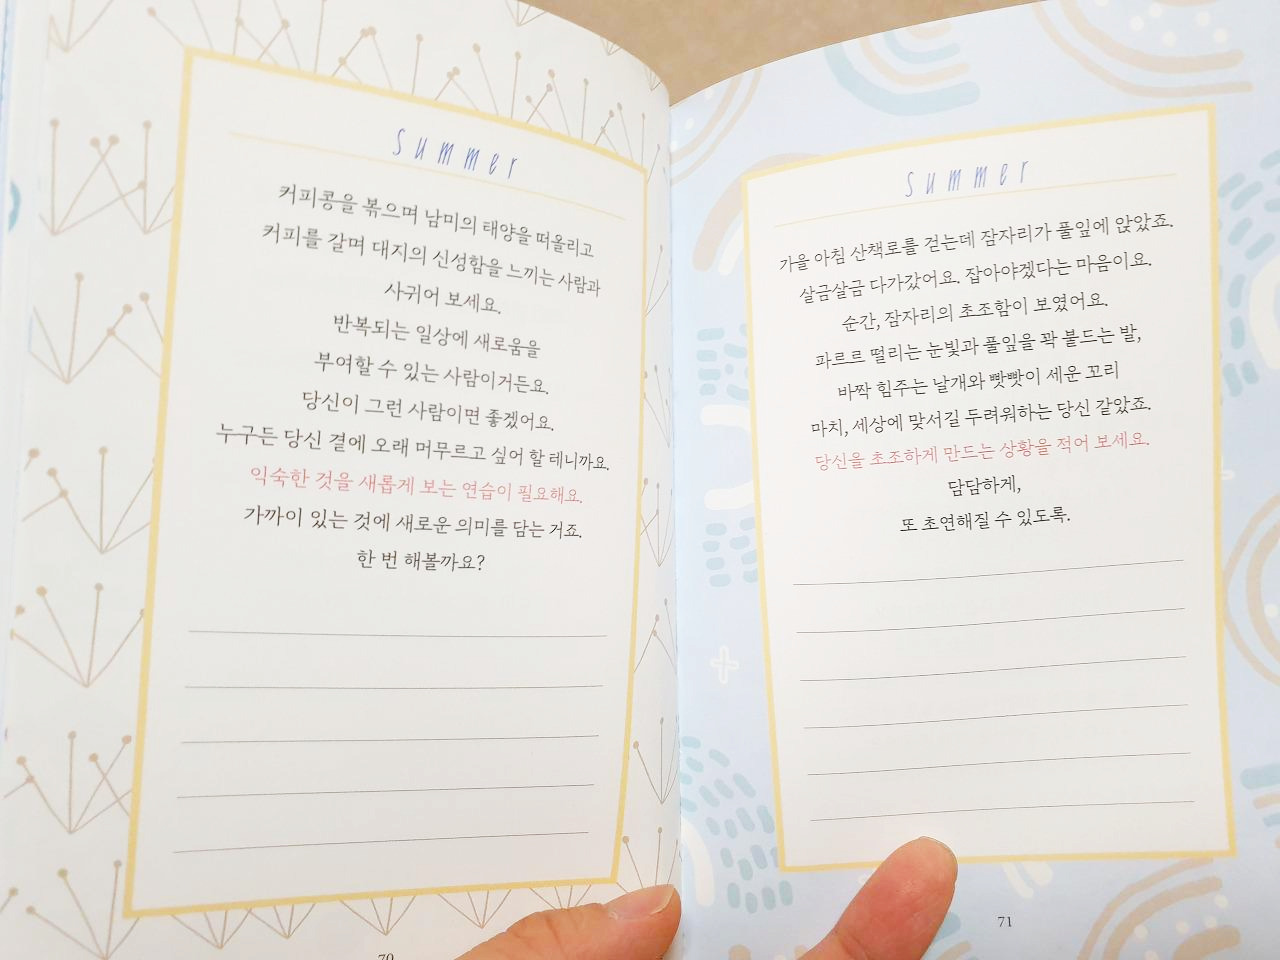 Summer
커피콩을 볶으며 남미의 태양을 떠올리고
커피를 갈며 대지의 신성함을 느끼는 사람과
사귀어 보세요.
반복되는 일상에 새로움을
부여할 수 있는 사람이거든요.
당신이 그런 사람이면 좋겠어요.
누구든 당신 곁에 오래 머무르고 싶어 할 테니까요.
익숙한 것을 새롭게 보는 연습이 필요해요.
가까이 있는 것에 새로운 의미를 담는 거죠.
한 번 해볼까요?
70
Summer
가을 아침 산책로를 걷는데 잠자리가 풀잎에 앉았죠.
살금살금 다가갔어요. 잡아야겠다는 마음이요.
순간, 잠자리의 초조함이 보였어요.
파르르 떨리는 눈빛과 풀잎을 꽉 붙드는 발,
바짝 힘주는 날개와 빳빳이 세운 꼬리
마치, 세상에 맞서길 두려워하는 당신 같았죠.
당신을 초조하게 만드는 상황을 적어 보세요.
담담하게,
또 초연해질 수 있도록.
71